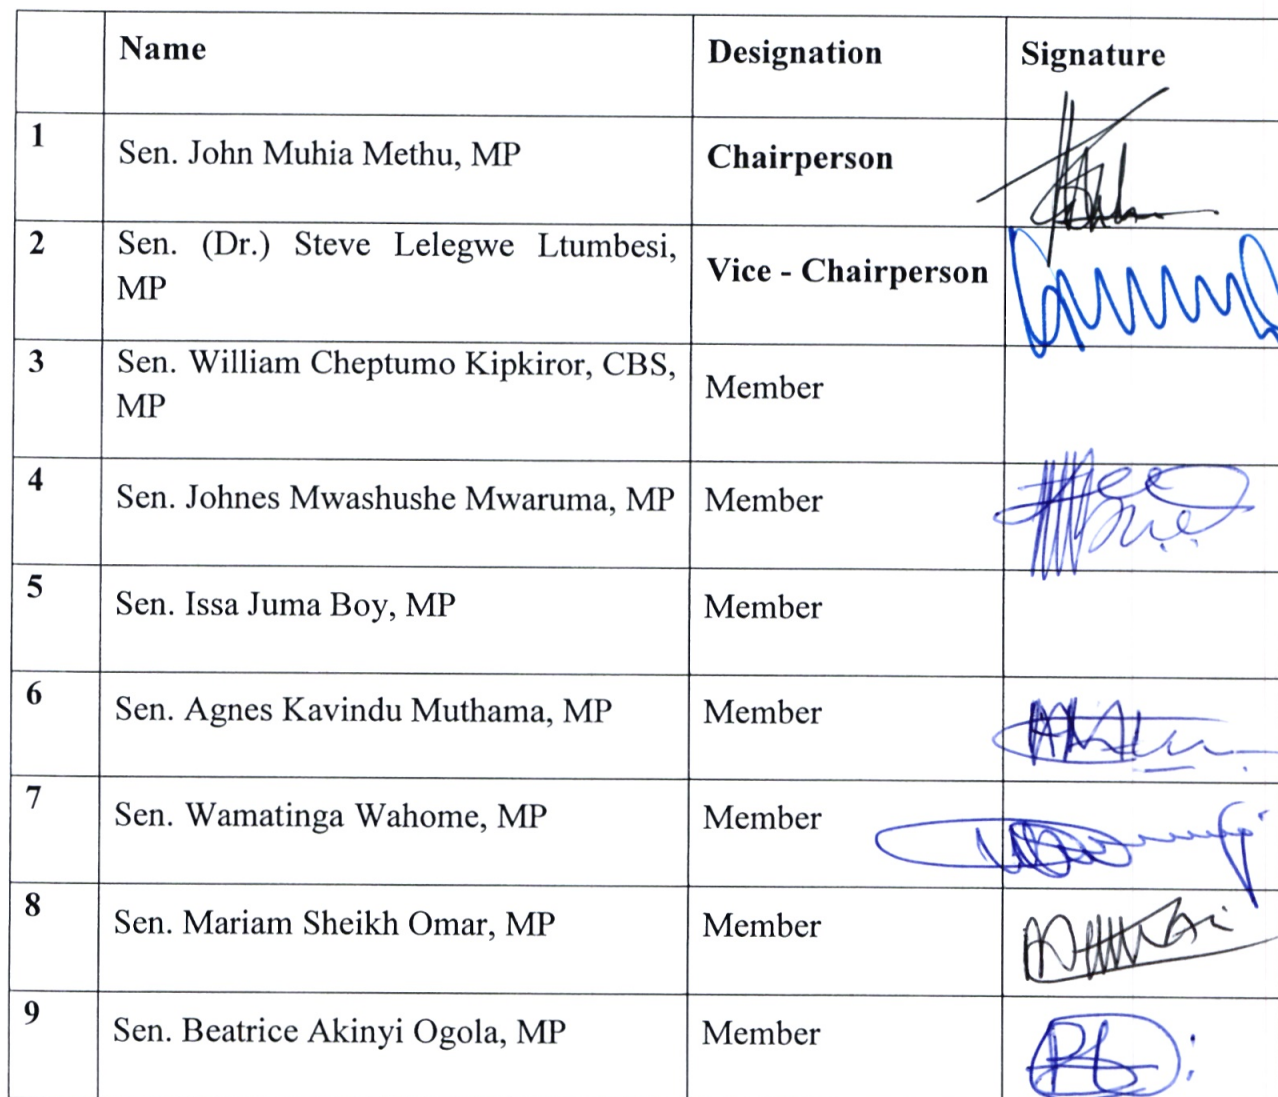 Name Designation Signature
1 Sen. John Muhia Methu, MP Chairperson
2 Sen. (Dr.) Steve Lelegwe Ltumbesi,
MP Vice - Chairperson
3 Sen. William Cheptumo Kipkiror, CBS,
MP Member
4 Sen. Johnes Mwashushe Mwaruma, MP Member
5 Sen. Issa Juma Boy, MP Member
6 Sen. Agnes Kavindu Muthama, MP Member
7 Sen. Wamatinga Wahome, MP Member
8 Sen. Mariam Sheikh Omar, MP Member
9 Sen. Beatrice Akinyi Ogola, MP Member